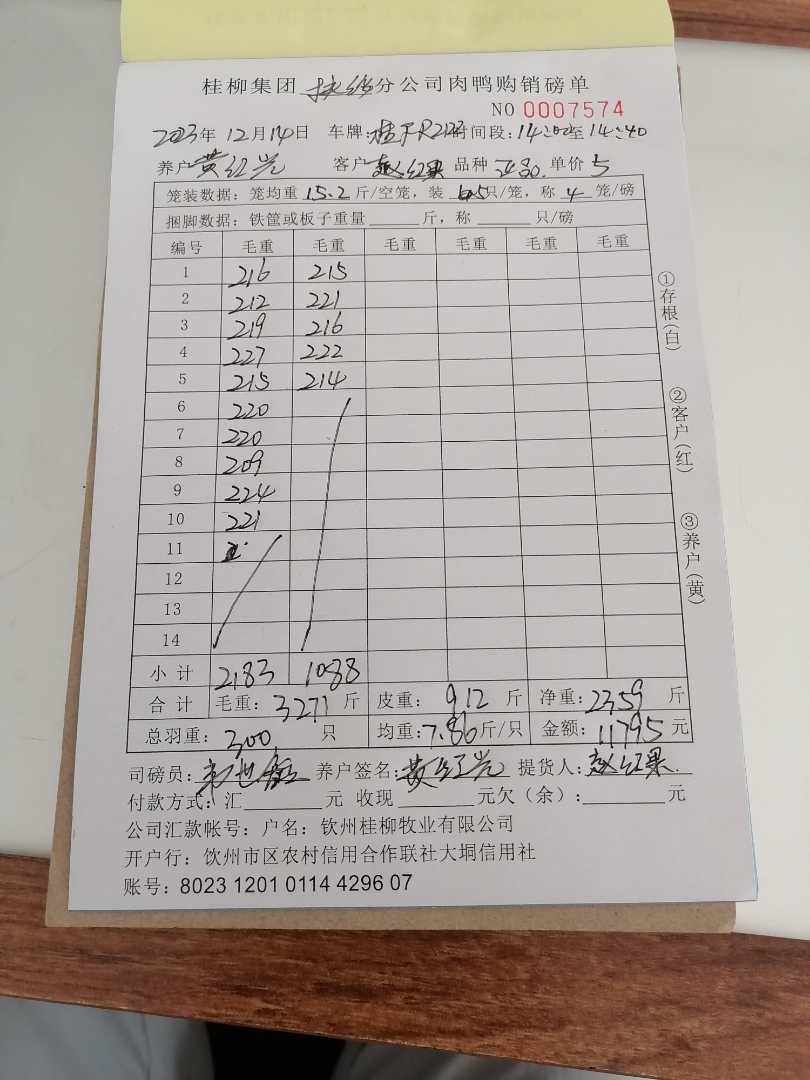 桂柳集团 扶绥 分公司肉鸭购销磅单
NO 0007574
2023年 12月14日 车牌: 时间段: 14:00至14:40
养户 黄红光 客户 赵红果 品种 单价 5
笼装数据: 笼均重 15.2 斤/空笼, 装 5只/笼, 称 4 笼/磅
捆脚数据: 铁筐或板子重量 斤, 称 只/磅
编号 毛重 毛重 毛重 毛重 毛重 毛重
1 216 215
2 212 221
3 219 216
4 227 222
5 215 214
6 220
7 220
8 209
9 224
10 221
11
12
13
14
小计 2183 1088
合计 毛重: 3271 斤 皮重: 912 斤 净重: 2359 斤
总羽重: 300 只 均重: 7.86斤/只 金额: 11795 元
司磅员: 养户签名: 黄红光 提货人: 赵红果
付款方式: 汇 元 收现 元欠(余): 元
公司汇款帐号: 户名: 钦州桂柳牧业有限公司
开户行: 饮州市区农村信用合作联社大垌信用社
账号: 8023 1201 0114 4296 07
①存根(白)
②客户(红)
③养户(黄)